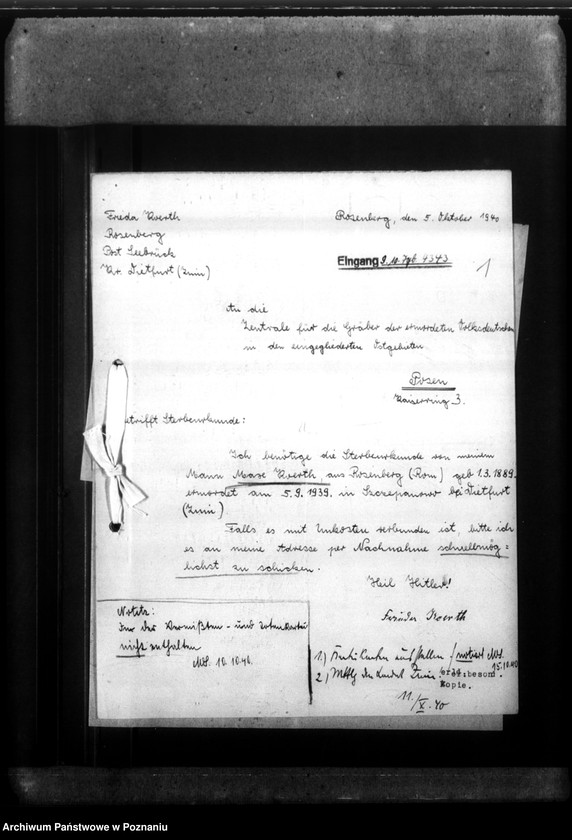 Frieda Werth
Rosenberg, den 5. Oktober 1940
Rosenberg
Post Seebrück
Kr. Dietfurt (Znin)
Eingang
1
An die
Zentrale für die Gräber der ermordeten Volksdeutschen
in den eingegliederten Ostgebieten.
Posen
Kaiserring 3.
etrifft Sterbeurkunde:
Ich benötige die Sterbeurkunde von meinem
Mann Max Werth, aus Rosenberg (Rom) geb 1.3.1889.
ermordet am 5.9.1939. in Szczepanowo bei Dietfurt
(Znin)
Falls es mit Unkosten verbunden ist, bitte ich
es an meine Adresse per Nachnahme schnellmög=
lichst zu schicken.
Heil Hitler!
Frieda Werth
Notitz:
In der Vermißten- und Totenkartei
nicht enthalten
10.10.40.
1.)
notiert
15.10.40
2.)
erld:besom.
Kopie.
11./X.40
Archiwum Państwowe w Poznaniu